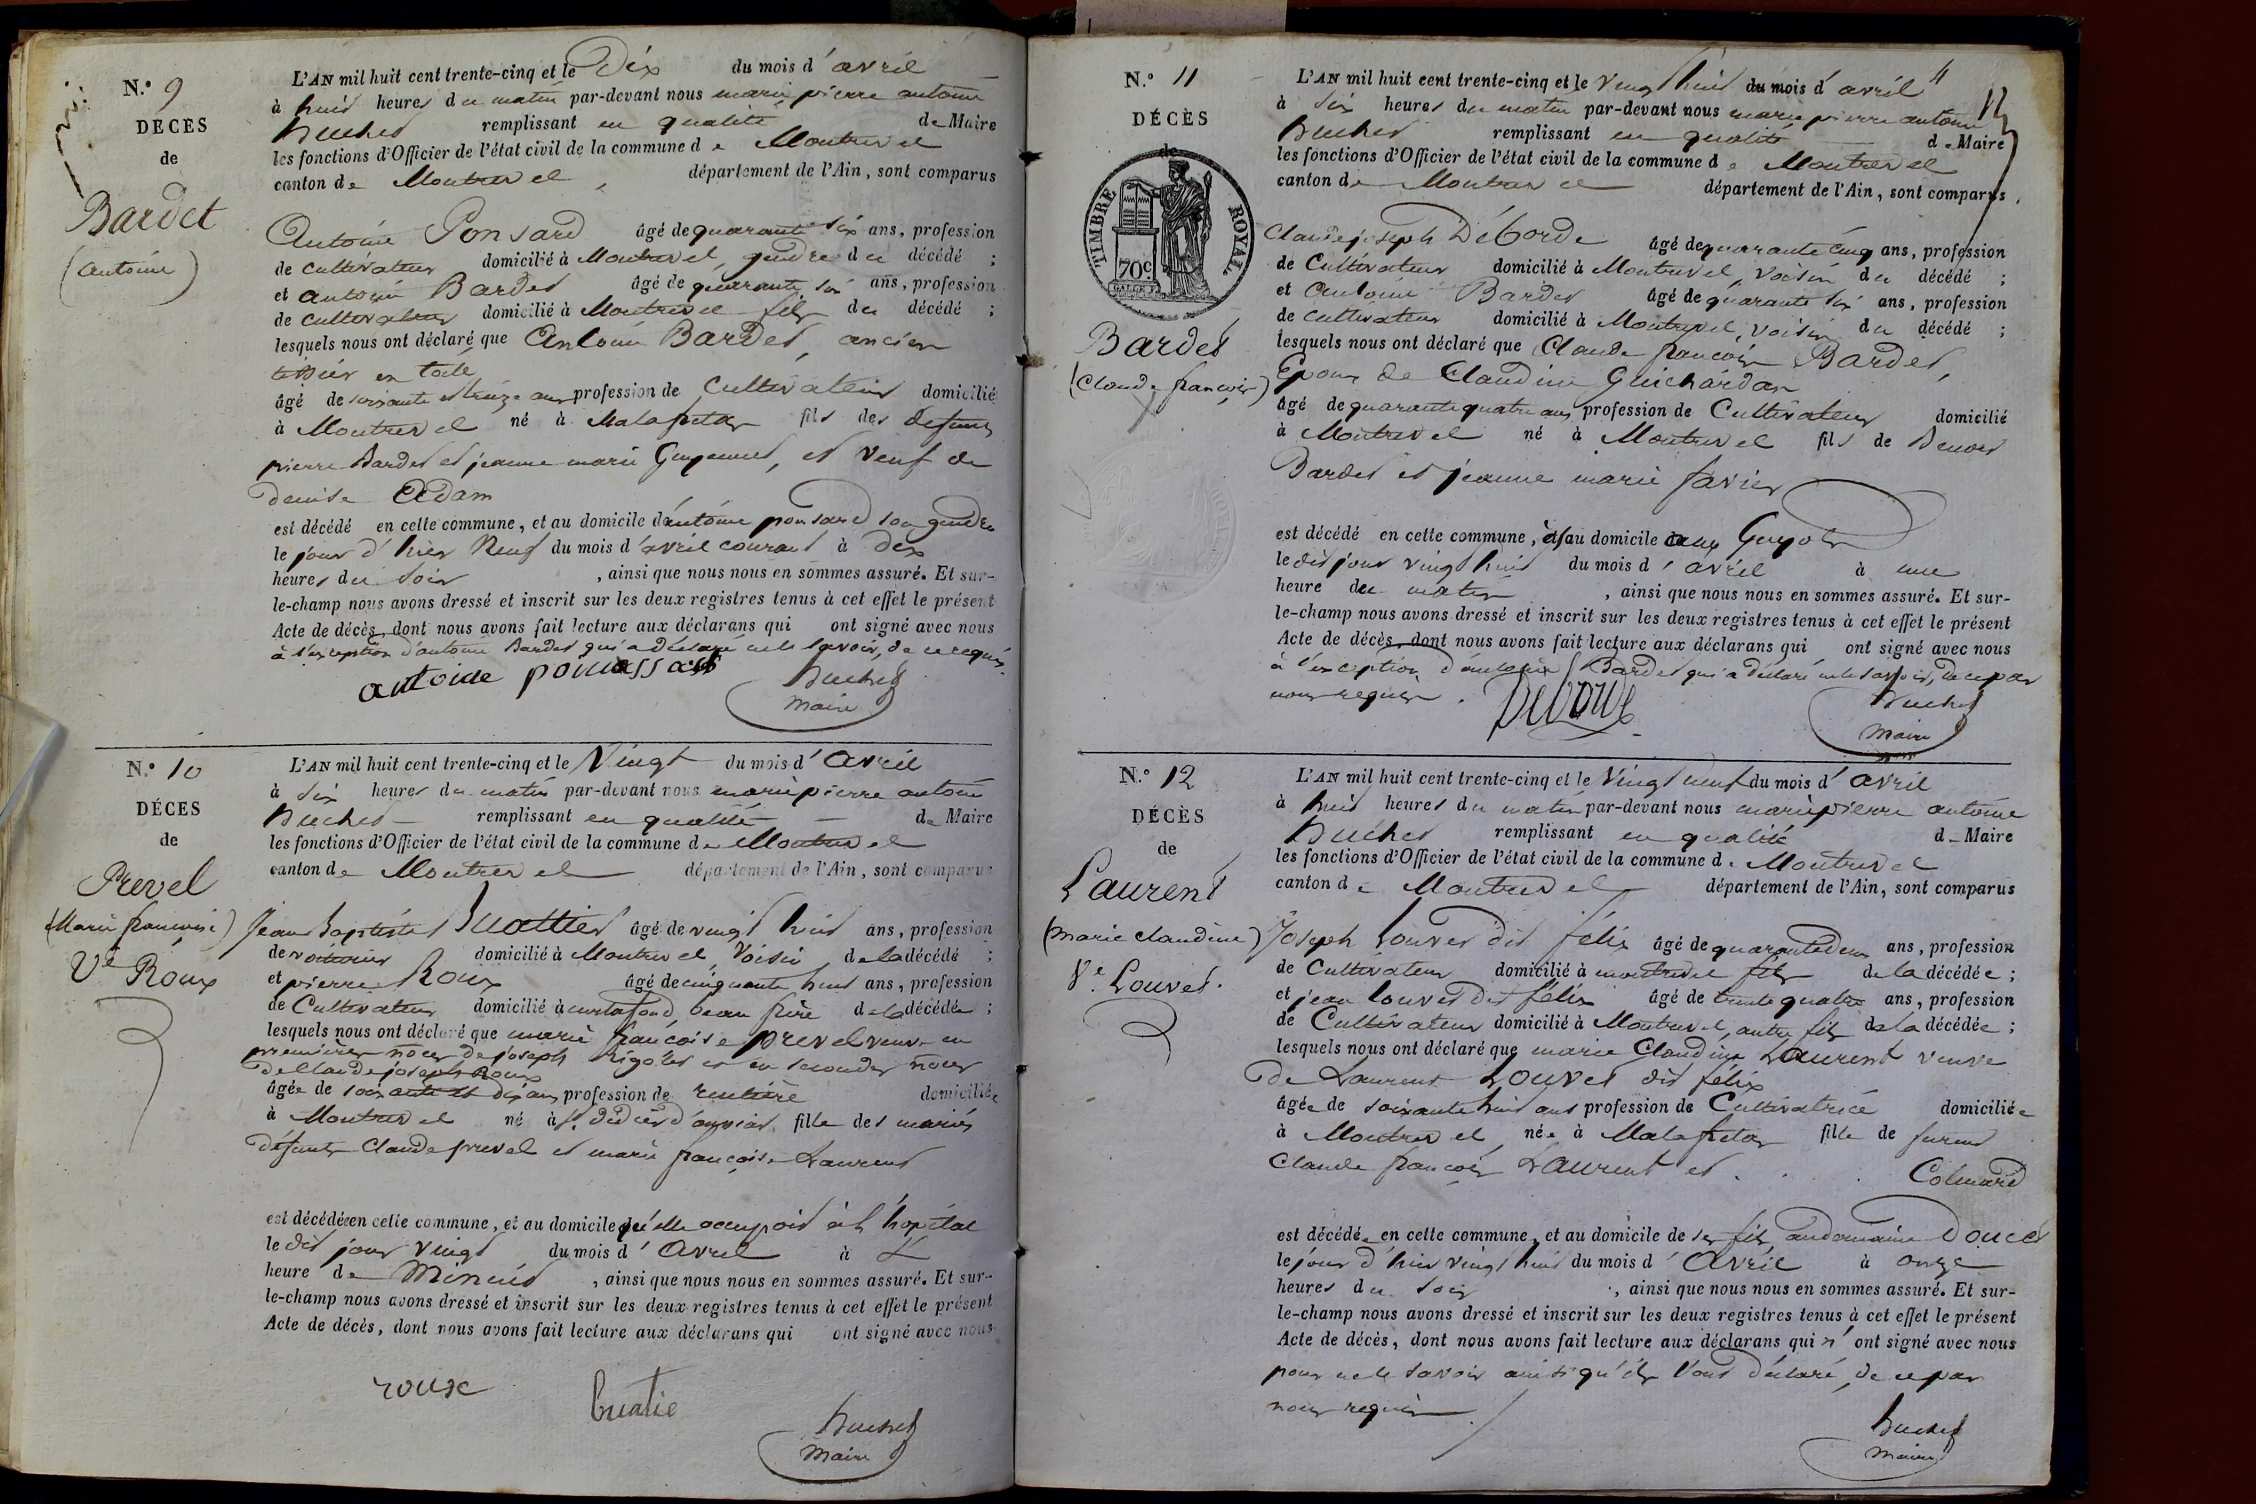 N.° 9
DÉCÈS
de
Bardet
(antoine)
L'AN mil huit cent trente-cinq et le Dix du mois d'avril
à huit heures du matin par-devant nous marie pierre antoine
huchet remplissant en qualité de Maire
les fonctions d'Officier de l'état civil de la commune de Montrevel
canton de Montrevel, département de l'Ain, sont comparus
Antoine Ponsard âgé de quarante six ans, profession
de cultivateur domicilié à Montrevel, gendre du décédé ;
et antoine Bardet âgé de quarante six ans, profession
de cultivateur domicilié à Montrevel fils du décédé ;
lesquels nous ont déclaré que Antoine Bardet, ancien
tissier en toile
âgé de soixante et treize ans profession de Cultivateur domicilié
à Montrevel né à Malafretaz fils des defunts
pierre Bardet et jeanne marie Guyennet, et veuf de
denise Adam
est décédé en cette commune, et au domicile d'antoine ponsard son gendre
le jour d'hier Neuf du mois d'avril courant à dix
heures du soir, ainsi que nous nous en sommes assuré. Et sur-
le-champ nous avons dressé et inscrit sur les deux registres tenus à cet effet le présent
Acte de décès, dont nous avons fait lecture aux déclarans qui ont signé avec nous
à l'exception d'antoine Bardet qui a déclaré ne le savoir, de ce requis.
antoine
huchet
maire
N.° 10
DÉCES
de
Prevel
(Marie francoise)
Ve Roux
L'AN mil huit cent trente-cinq et le Vingt du mois d'Avril
à six heures du matin par-devant nous marie pierre antoine
huchet remplissant en qualité de Maire
les fonctions d'Officier de l'état civil de la commune de Montrevel
canton de Montrevel département de l'Ain, sont comparus
Jean Baptiste Buattier âgé de vingt huit ans, profession
de voiturier domicilié à Montrevel, Voisin de la décédé ;
et pierre Roux âgé de cinquante huit ans, profession
de Cultivateur domicilié à curtafond beau frère de la décédée ;
lesquels nous ont déclaré que marie françoise prevel veuve en
premières noces de joseph Rigolet et en secondes noces
de Claude joseph Roux
âgée de soixante et dix ans profession de rentière domiciliée
à Montrevel né à St. didier d'aussiat fille des mariés
défunts Claude prevel et marie françoise Laurent
est décédée en cette commune, et au domicile qu'elle occupoit à l'hopital
le dit jour vingt du mois d'Avril à
heure de Minuit, ainsi que nous nous en sommes assuré. Et sur-
le-champ nous avons dressé et inscrit sur les deux registres tenus à cet effet le présent
Acte de décès, dont nous avons fait lecture aux déclarans qui ont signé avec nous
roux
buatié
huchet
maire
11
N.° 11
DÉCÈS
de
TIMBRE ROYAL
70c
Bardet
(Claude françois)
L'AN mil huit cent trente-cinq et le Vingt huit du mois d'avril
à six heures du matin par-devant nous marie pierre antoine
huchet remplissant en qualité de Maire
les fonctions d'Officier de l'état civil de la commune de Montrevel
canton de Montrevel département de l'Ain, sont comparus,
Claude joseph Déborde âgé de quarante cinq ans, profession
de Cultivateur domicilié à Montrevel, voisin du décédé ;
et Antoine Bardet âgé de quarante six ans, profession
de cultivateur domicilié à Montrevel, voisin du décédé ;
lesquels nous ont déclaré que Claude françois Bardet,
Epoux de Claudine Guichardan
âgé de quarante quatre ans profession de Cultivateur domicilié
à Montrevel né à Montrevel fils de Benoit
Bardet et jeanne marie favier
est décédé en cette commune, et au domicile aux Guyots
le dit jour vingt huit du mois d'avril à une
heure du matin, ainsi que nous nous en sommes assuré. Et sur-
le-champ nous avons dressé et inscrit sur les deux registres tenus à cet effet le présent
Acte de décès, dont nous avons fait lecture aux déclarans qui ont signé avec nous
à l'exception d'antoine Bardet qui a déclaré ne le savoir, de ce par
nous requis.
Deborde
huchet
maire
N.° 12
DÉCÈS
de
Laurent
(marie claudine)
Ve. Louvet.
L'AN mil huit cent trente-cinq et le Vingt neuf du mois d'avril
à huit heures du matin par-devant nous marie pierre antoine
huchet remplissant en qualité de Maire
les fonctions d'Officier de l'état civil de la commune de Montrevel
canton de Montrevel département de l'Ain, sont comparus
Joseph Louvet dit félix âgé de quarante deux ans, profession
de Cultivateur domicilié à montrevel fils de la décédée ;
et jean Louvet dit félix âgé de trente quatre ans, profession
de Cultivateur domicilié à Montrevel, autre fils de la décédée ;
lesquels nous ont déclaré que marie Claudine Laurent veuve
de Laurent Louvet dit félix
âgée de soixante huit ans profession de Cultivatrice domiciliée
à Montrevel née à Malafretaz fille de furent
Claude françois Laurent et . . . Colmard
est décédée en cette commune, et au domicile de ses fils au domaine Doucet
le jour d'hier vingt huit du mois d'Avril à onze
heures du soir, ainsi que nous nous en sommes assuré. Et sur-
le-champ nous avons dressé et inscrit sur les deux registres tenus à cet effet le présent
Acte de décès, dont nous avons fait lecture aux déclarans qui n'ont signé avec nous
pour ne le savoir ainsi qu'ils l'ont déclaré, de ce par
nous requis.
huchet
maire